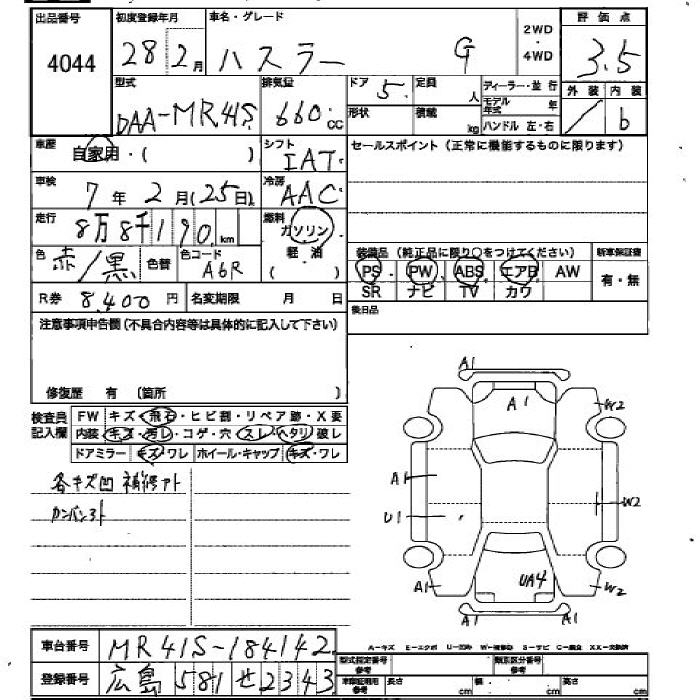 出品番号 初度登録年月 車名・グレード 2WD・4WD 評価点
4044 28 2月 ハスラー G 3.5
型式 排気量 ドア 5 定員 人 ディーラー・並行 外装 内装
DAA-MR41S 660cc 形状 積載 kg モデル年式 年 / b
ハンドル 左・右
車歴 自家用・( ) シフト IAT セールスポイント (正常に機能するものに限ります)
車検 7年2月(25日) 冷房 AAC
走行 8万8千190km 燃料 ガソリン・軽油 ( )
色 赤/黒 色替 色コード A6R
装備品 (純正品に限り○をつけてください) 新車保証書
PS PW ABS エアB AW 有・無
SR ナビ TV カワ
R券 8,400円 名変期限 月 日
後日品
注意事項申告欄(不具合内容等は具体的に記入して下さい)
修復歴 有 〔箇所 〕
検査員記入欄 FW キズ・飛石・ヒビ割・リペア跡・X要
内装 キズ・汚レ・コゲ・穴 スレ・ヘタリ・破レ
ドアミラー キズ・ワレ ホイール・キャップ キズ・ワレ
各キズ凹 補修アト
カンバンアト
A1
A1 W2
A1
U1 W2
A1 UA4 W2
A1 A1
A-キズ E-エクボ U-凹み W-補修跡 S-サビ C-腐食 XX-交換済
車台番号 MR41S-184142
登録番号 広島 581 せ 2343
型式指定番号 参考 類別区分番号 参考
車庫証明用 参考 長さ cm 幅 cm 高さ cm